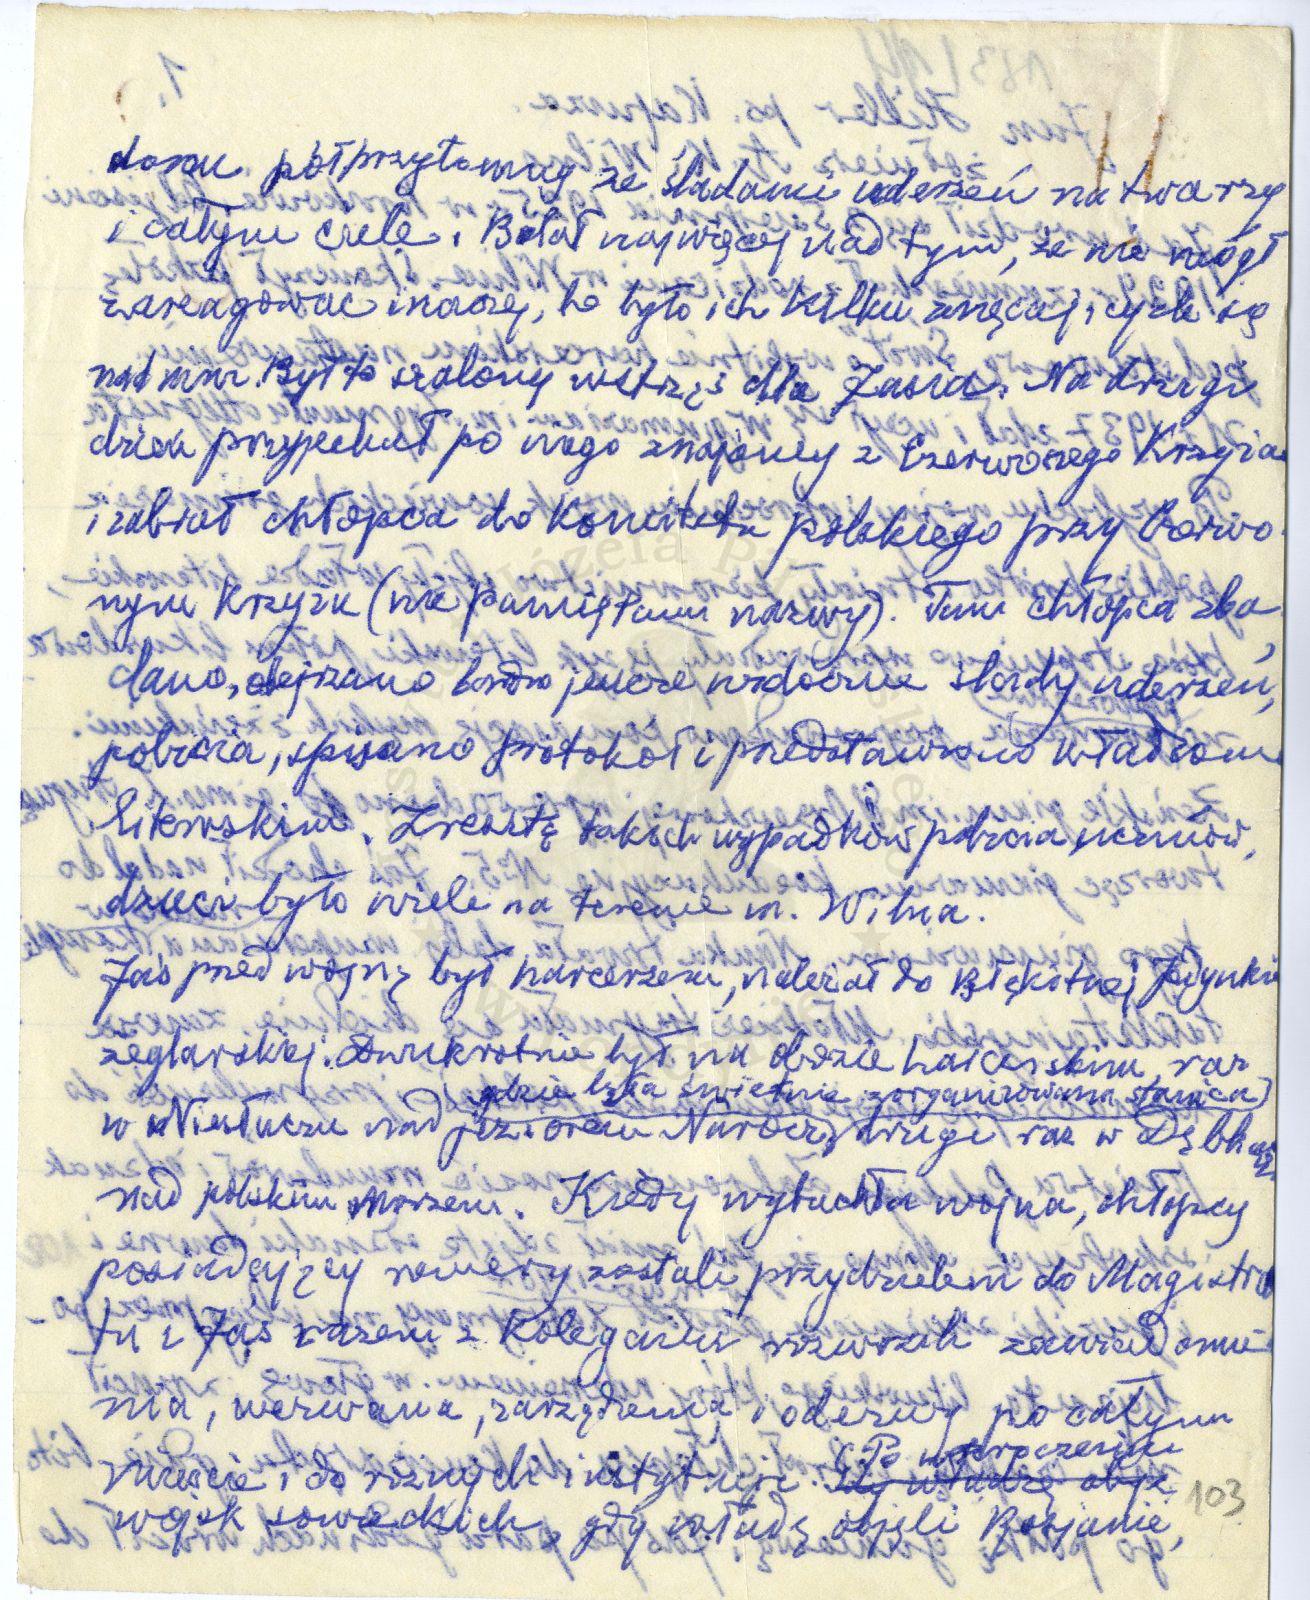 domu półprzytomny ze śladami uderzeń na twarzy
i całym ciele. Bolał najwięcej nad tym, że nie mógł
zareagować inaczej, bo było ich kilku znęcających się
nad nim. Był to szalony wstrząs dla Jasia. Na drugi
dzień przyjechał po niego znajomy z Czerwonego Krzyża
i zabrał chłopca do Komitetu polskiego przy Czerwo-
nym Krzyżu (nie pamiętam nazwy). Tam chłopca zba
dano, obejrzano bardzo jeszcze widoczne ślady uderzeń,
pobicia, spisano protokół i przedstawiono władzom
litewskim. Zresztą takich wypadków pobicia uczniów,
dzieci było wiele na terenie m. Wilna.
Jaś przed wojną był harcerzem, należał do Błękitnej Jedynki
żeglarskiej. Dwukrotnie był na obozie harcerskim, raz
(gdzie była świetnie zorganizowana stanica)
w Niesłuczu nad jeziorem Narocz, drugi raz w Dębkach
nad polskim morzem. Kiedy wybuchła wojna, chłopcy
posiadający rowery zostali przydzieleni do Magistra
tu i Jaś razem z kolegami rozwozili zawiadomie
nia, wezwania, zarządzenia i odezwy po całym
mieście i do różnych instytucji. Po wkroczeniu
wojsk sowieckich, gdy władzę objęli Rosjanie,
103